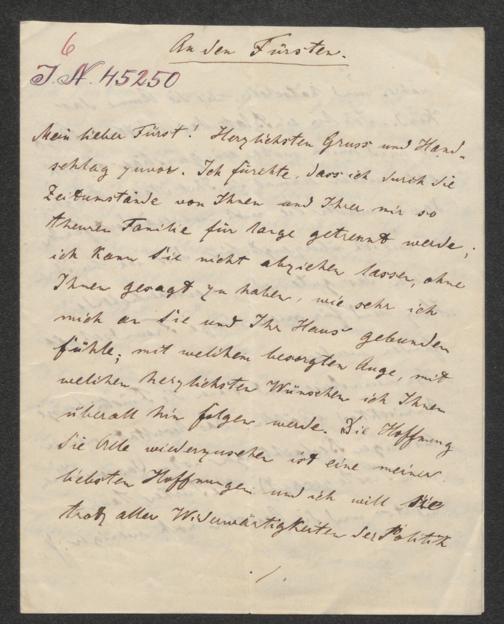 6
An den Fürsten.
J. N. 45250
Mein lieber Fürst! Herzlichsten Gruss und Hand-
schlag zuvor. Ich fürchte, dass ich durch die
Zeitumstände von Ihnen und Ihrer mir so
theuren Familie für lange getrennt werde;
ich kann Sie nicht abziehen lassen, ohne
Ihnen gesagt zu haben, wie sehr ich
mich an Sie und Ihr Haus gebunden
fühle; mit welchem besorgten Auge, mit
welchen herzlichsten Wünschen ich Ihnen
überall hin folgen werde. Die Hoffnung
Sie Alle wiederzusehen ist eine meiner
liebsten Hoffnungen und ich will sie
trotz aller Widerwärtigkeiten der Politik
./.